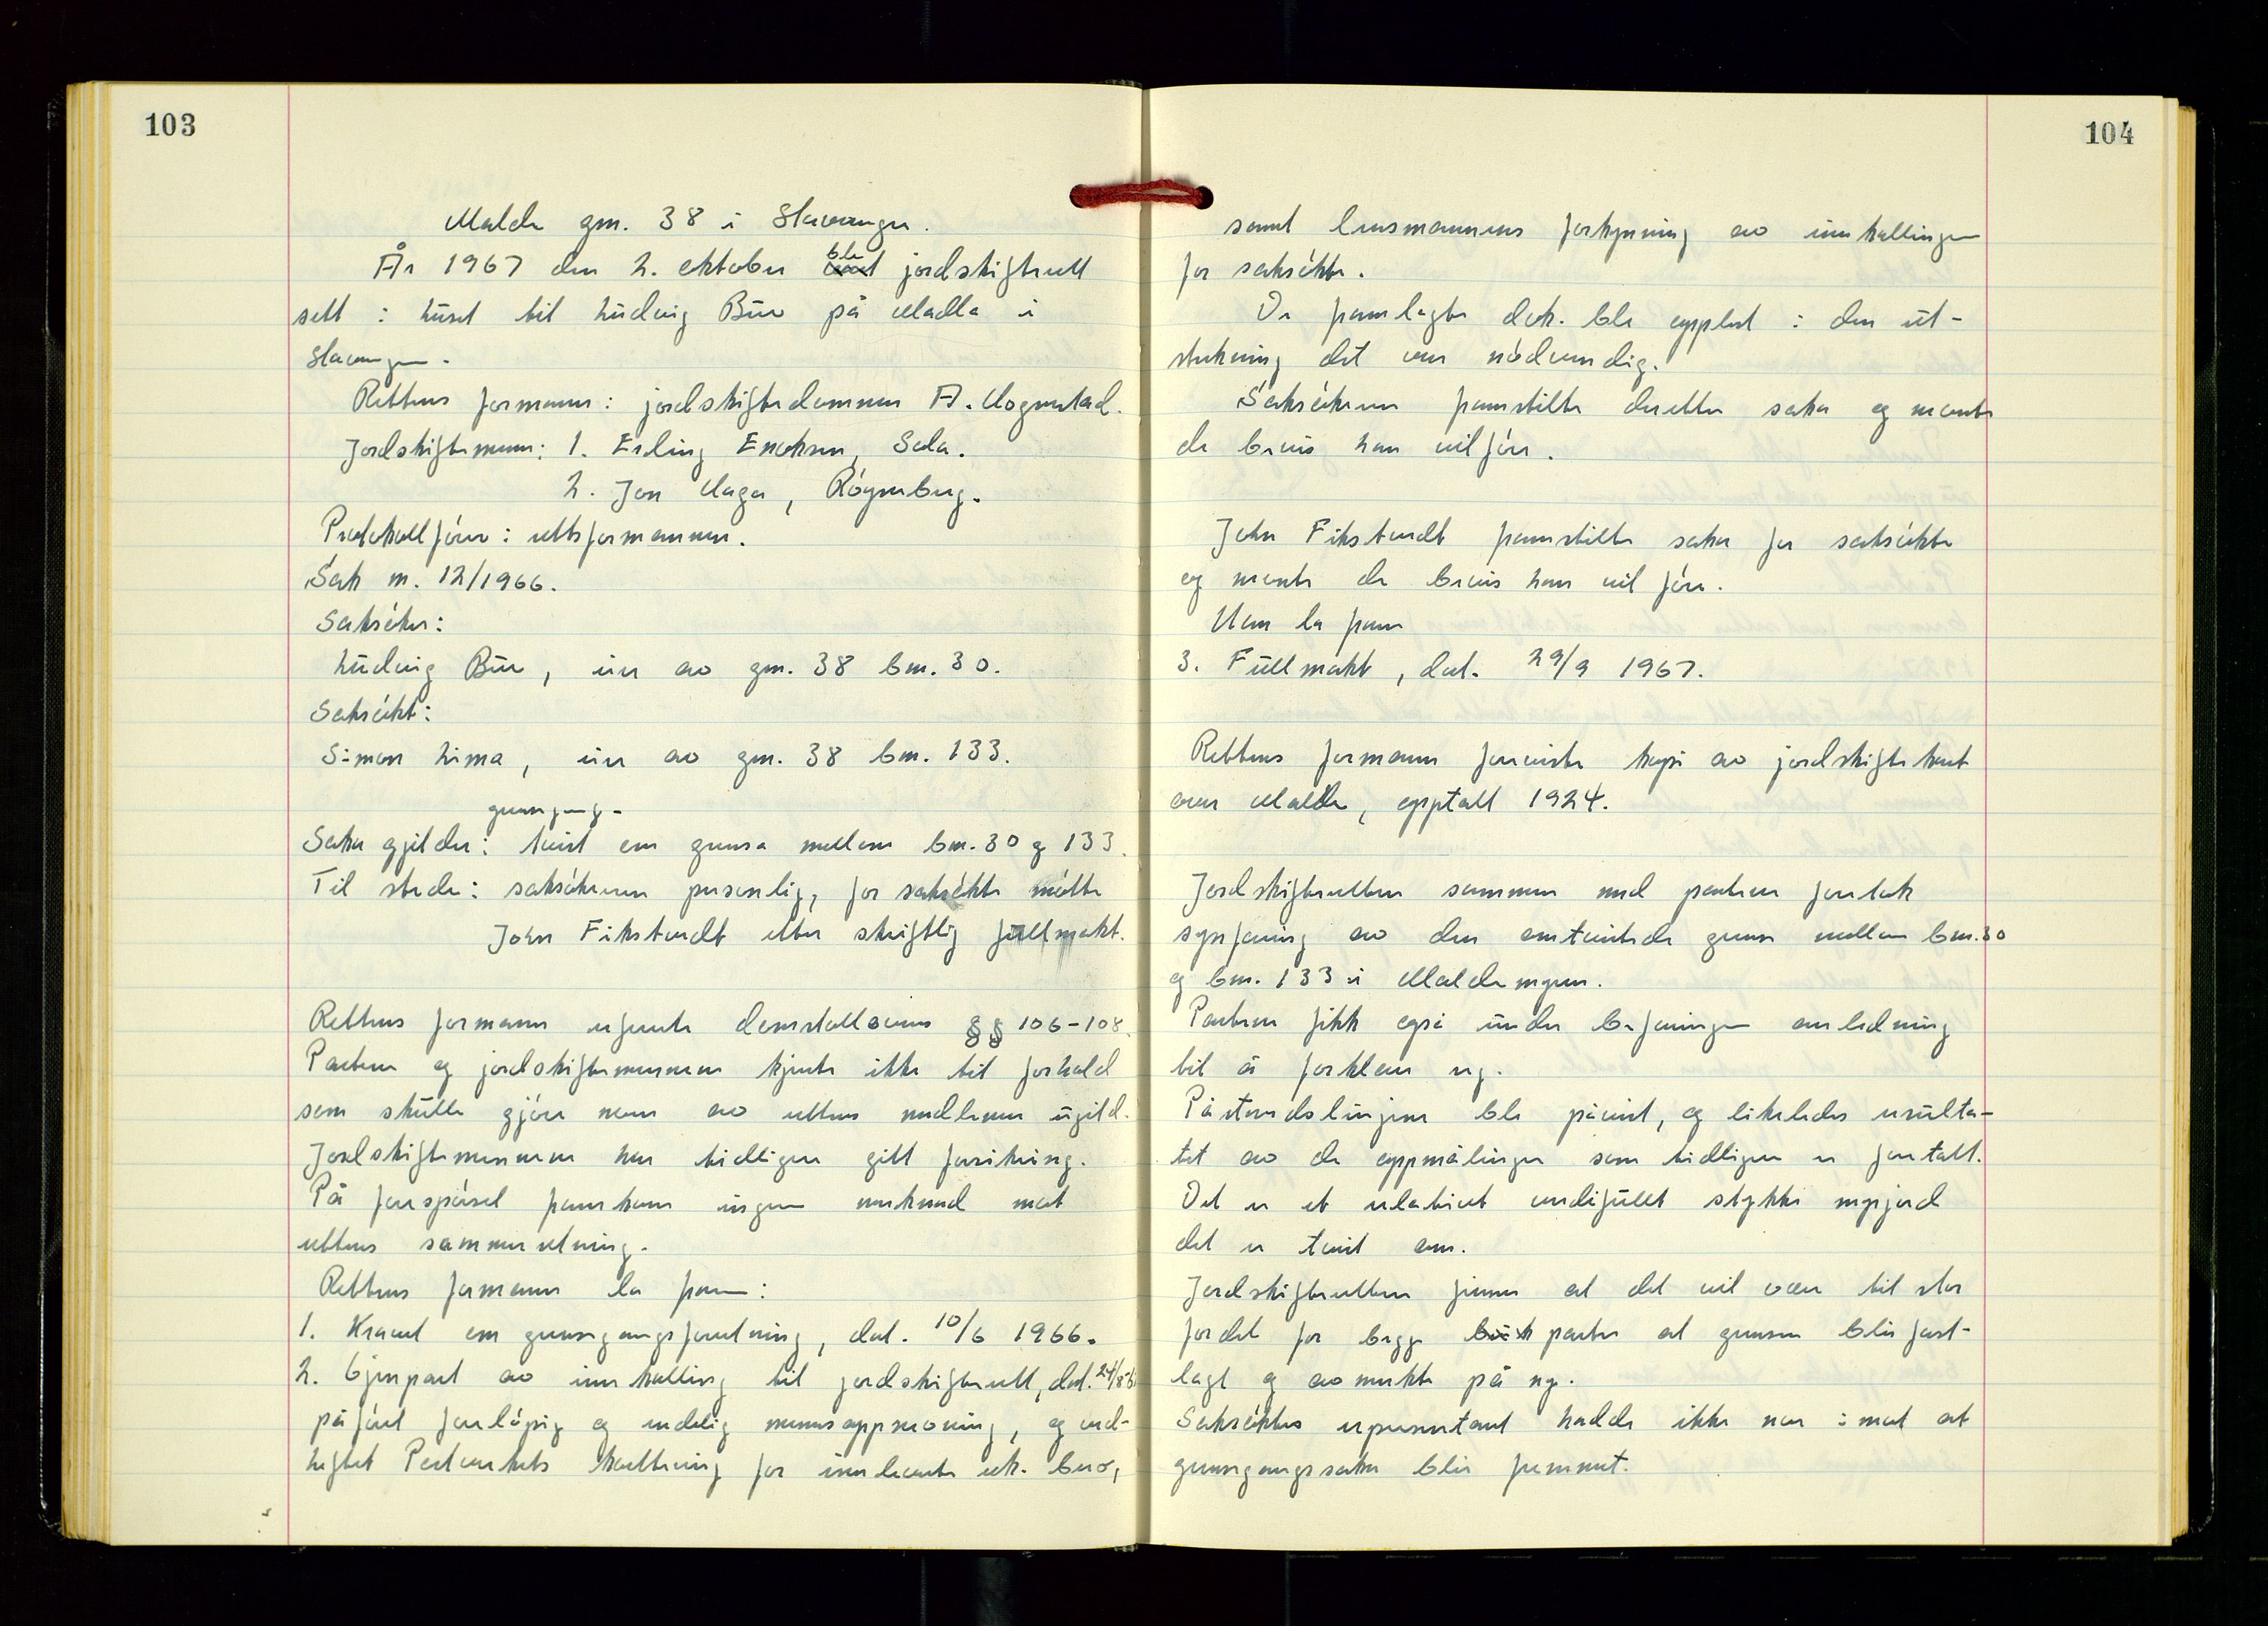 103
Malde gnr. 38 i Stavanger.
År 1967 den 2. oktober ble jordskifterett
satt i huset til Ludvig Bue på Madla i
Stavanger.
Rettens formann: jordskiftedommer A.
Jordskiftemenn: 1. Erling Enoksen, Sola.
2. Jon Haga, Røyneberg.
Protokollfører: rettsformannen.
Sak nr. 12/1966.
Saksøker:
Ludvig Bue, eier av gnr. 38 bnr. 30.
Saksøkt:
Simon Lima, eier av gnr. 38 bnr. 133.
grensegang.
Saka gjelder: tvist om grensa mellom bnr. 30 og 133.
Til stede: saksøkeren personlig, for saksøkte møtte
John Fikstvedt etter skriftlig fullmakt.
Rettens formann refererte domstollovens §§ 106-108.
Partene og jordskiftemennene kjente ikke til forhold
som skulle gjøre noen av rettens medlemmer ugild.
Jordskiftemennene har tidligere gitt forsikring.
På forespørsel framkom ingen merknad mot
rettens sammensetning.
Rettens formann la fram:
1. Kravet om grensegangsforretning, dat. 10/6 1966.
2. Gjenpart av innkalling til jordskifterett, dat. 24/8-67
påført foreløpig og endelig mannsoppnevning, og ved-
heftet Postverkets kvittering for innleverte rek. brev,
104
samt lensmannens forkynning av innkallingen
for saksøkte.
De framlagte dok. ble opplest i den ut-
strekning det var nødvendig.
Saksøkeren framstilte deretter saka og nevnte
de bevis han vil føre.
John Fikstvedt framstilte saka for saksøkte
og nevnte de bevis han vil føre.
Han la fram
3. Fullmakt, dat. 29/9 1967.
Rettens formann foreviste kopi av jordskiftekart
over Malde, opptatt 1924.
Jordskifteretten sammen med partene foretok
synfaring av den omtvistede grense mellom bnr. 30
og bnr. 133 i Maldemyra.
Partene fikk også under befaringen anledning
til å forklare seg.
Påstandslinjene ble påvist, og likeledes resulta-
tet av de oppmålinger som tidligere er foretatt.
Det er et relativt verdifullt stykke myrjord
det er tvist om.
Jordskifteretten finner at det vil være til stor
fordel for begge parter at grensen blir fast-
lagt og avmerkte på ny.
Saksøktes representant hadde ikke noe imot at
grensegangssaka blir fremmet.